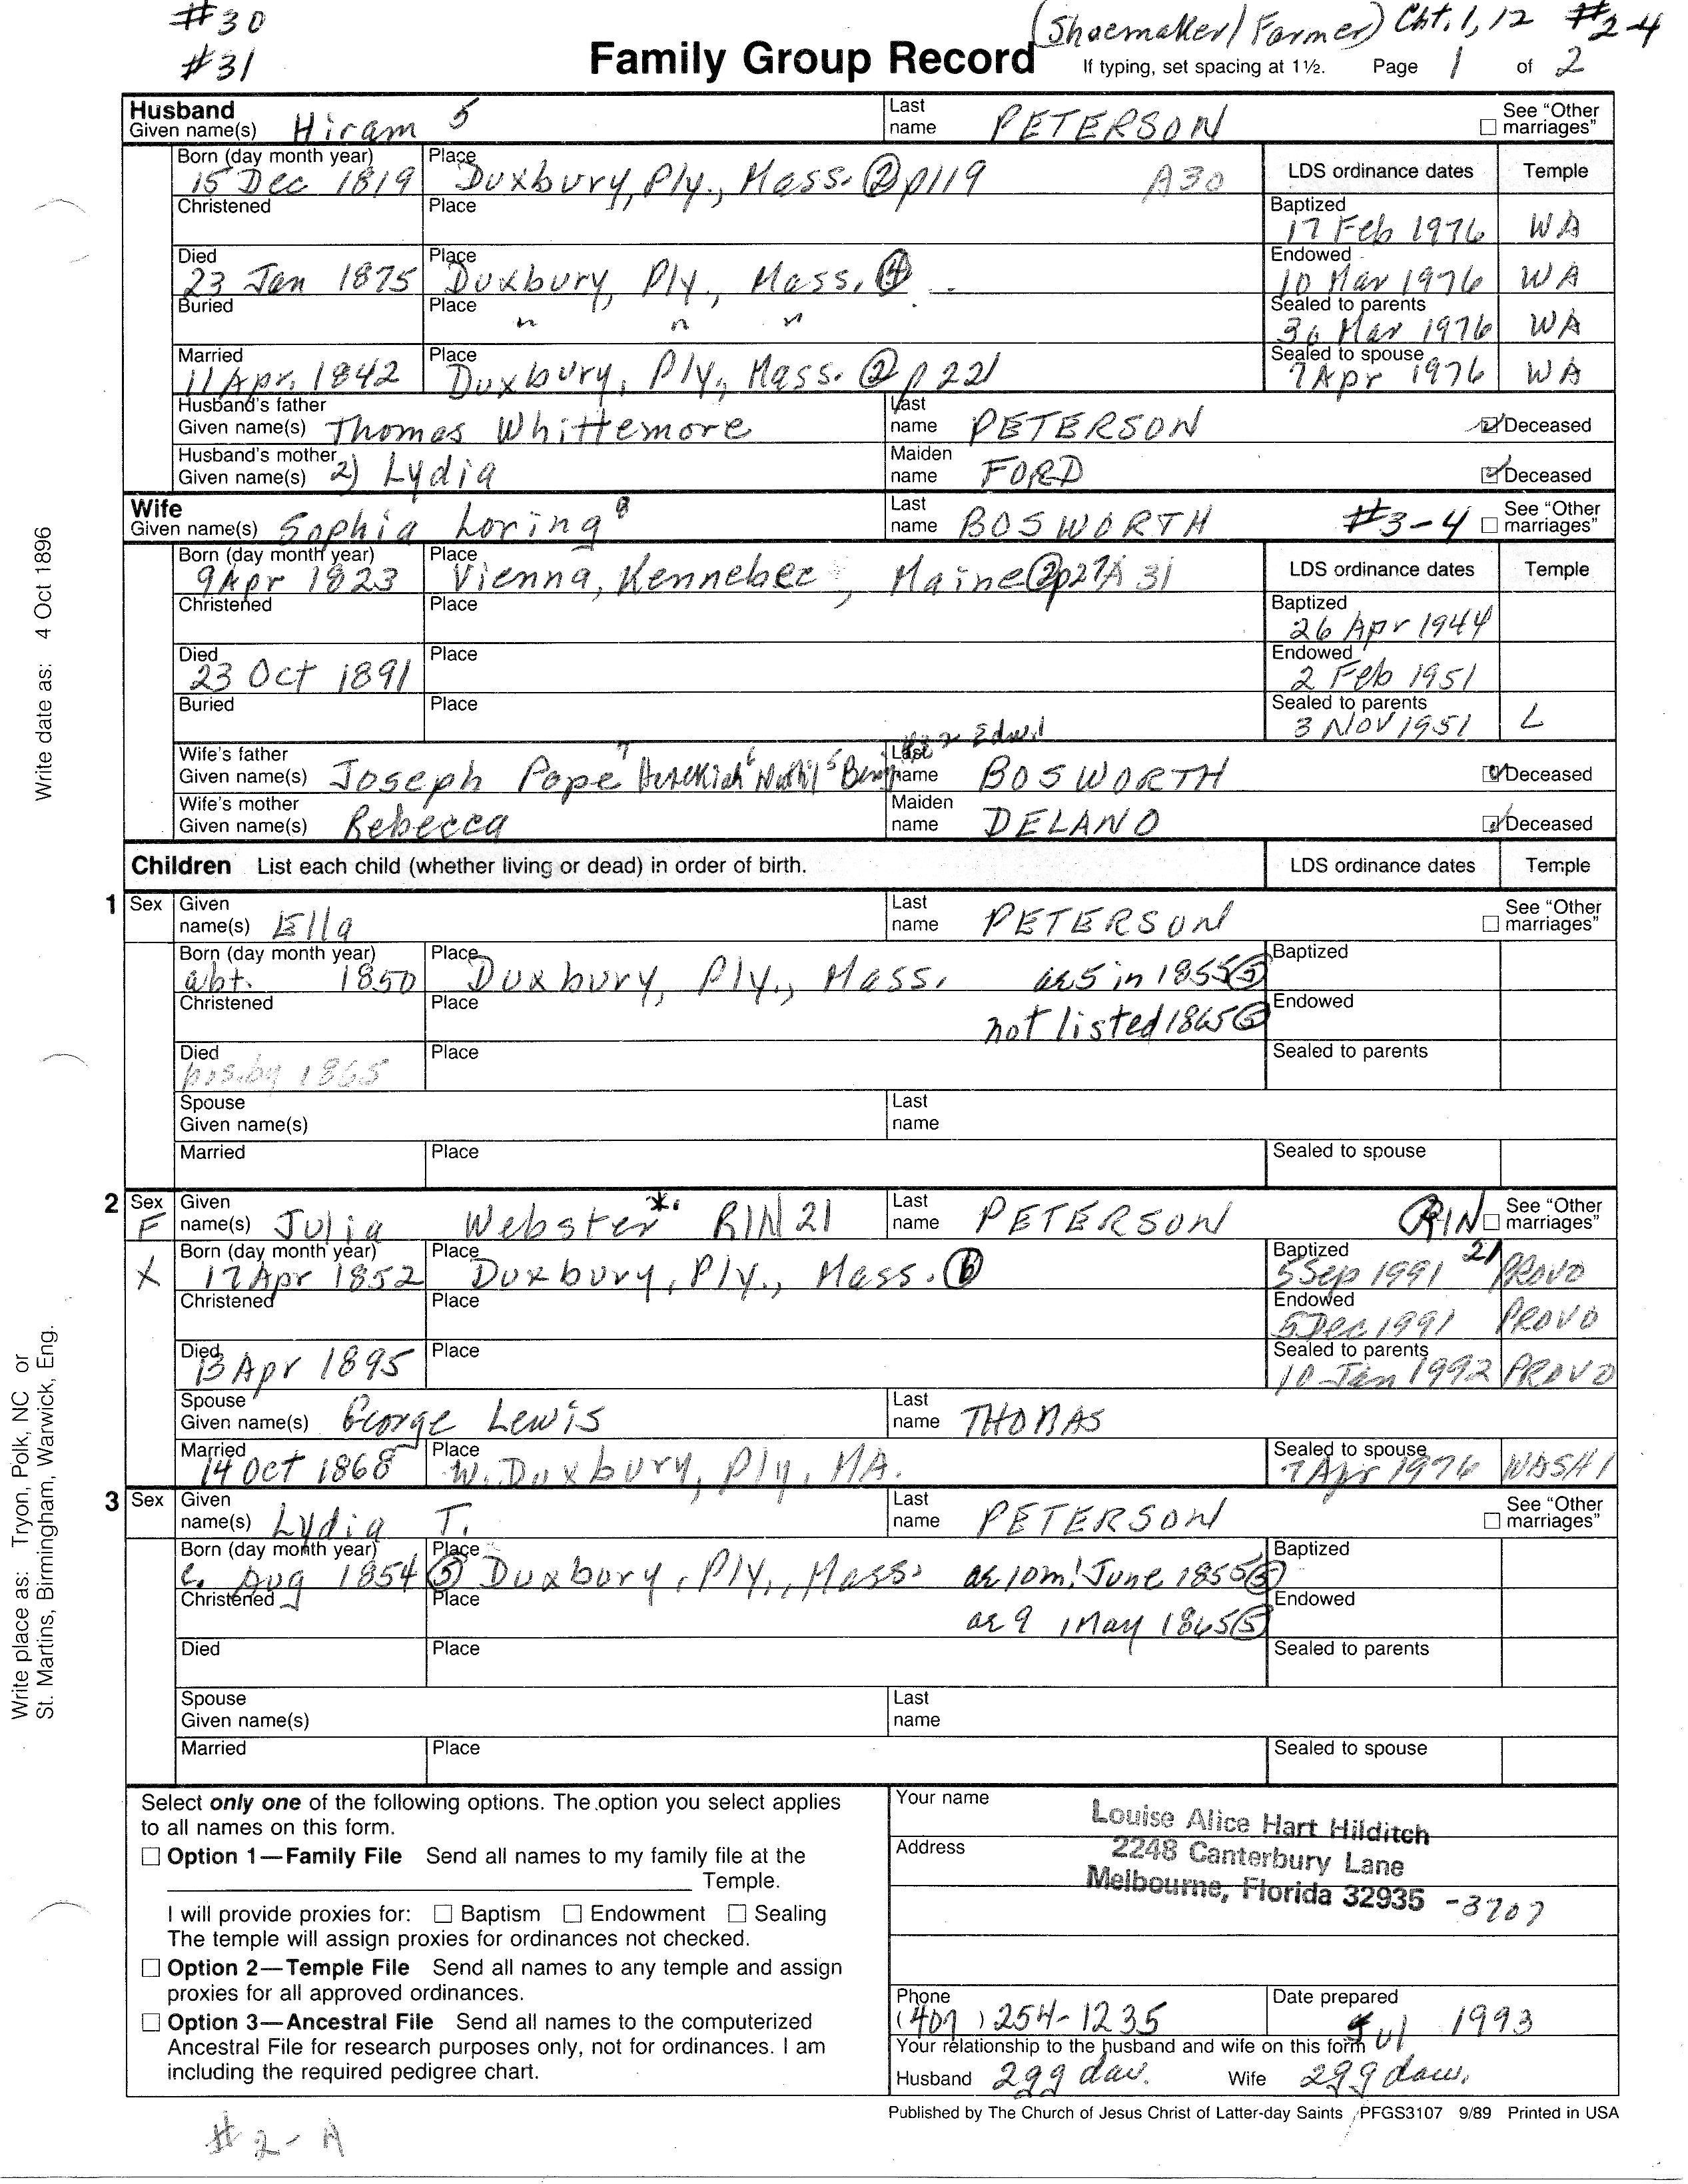 #30
#31
(Shoemaker/Farmer) Cht. 1, 12 #2-4
Family Group Record
If typing, set spacing at 1½. Page 1 of 2
Husband
Given name(s) Hiram 5
Last name PETERSON
See "Other marriages"
Born (day month year) 15 Dec 1819
Place Duxbury, Ply., Mass. ② p119 A30
LDS ordinance dates Temple
Christened
Place
Baptized 17 Feb 1976 WA
Died 23 Jan 1875
Place Duxbury, Ply., Mass. ④
Endowed 10 Mar 1976 WA
Buried
Place " " "
Sealed to parents 30 Mar 1976 WA
Married 11 Apr. 1842
Place Duxbury, Ply., Mass. ② p 221
Sealed to spouse 7 Apr 1976 WA
Husband's father
Given name(s) Thomas Whittemore
Last name PETERSON
Deceased
Husband's mother
Given name(s) 2) Lydia
Maiden name FORD
Deceased
Wife
Given name(s) Sophia Loring 8
Last name BOSWORTH #3-4
See "Other marriages"
Born (day month year) 9 Apr 1823
Place Vienna, Kennebec, Maine ② p27 A 31
LDS ordinance dates Temple
Christened
Place
Baptized 26 Apr 1944
Died 23 Oct 1891
Place
Endowed 2 Feb 1951
Buried
Place
Sealed to parents 3 Nov 1951 L
Wife's father
Given name(s) Joseph Pope 7 Hezekiah 6 5 Benj
Last name BOSWORTH
Deceased
Wife's mother
Given name(s) Rebecca
Maiden name DELANO
Deceased
Children List each child (whether living or dead) in order of birth.
LDS ordinance dates Temple
1 Sex
Given name(s) Ella
Last name PETERSON
See "Other marriages"
Born (day month year) abt. 1850
Place Duxbury, Ply., Mass. ae 5 in 1855 ⑤
Baptized
Christened
Place not listed 1865 ⑤
Endowed
Died pos. by 1865
Place
Sealed to parents
Spouse
Given name(s)
Last name
Married
Place
Sealed to spouse
2 Sex F
Given name(s) Julia Webster * RIN 21
Last name PETERSON RIN 21
See "Other marriages"
X
Born (day month year) 17 Apr 1852
Place Duxbury, Ply., Mass. ⑥
Baptized 5 Sep 1991 PROVO
Christened
Place
Endowed 5 Dec 1991 PROVO
Died 13 Apr 1895
Place
Sealed to parents 10 Jan 1992 PROVO
Spouse
Given name(s) George Lewis
Last name THOMAS
Married 14 Oct 1868
Place W. Duxbury, Ply, MA.
Sealed to spouse 7 Apr 1976 WASH
3 Sex
Given name(s) Lydia T.
Last name PETERSON
See "Other marriages"
Born (day month year) c. Aug 1854 ⑤
Place Duxbury, Ply., Mass. ae 10m! June 1855 ⑤
Baptized
Christened
Place ae 9 1 May 1865 ⑤
Endowed
Died
Place
Sealed to parents
Spouse
Given name(s)
Last name
Married
Place
Sealed to spouse
Select only one of the following options. The option you select applies
to all names on this form.
Option 1—Family File Send all names to my family file at the
Temple.
I will provide proxies for: Baptism Endowment Sealing
The temple will assign proxies for ordinances not checked.
Option 2—Temple File Send all names to any temple and assign
proxies for all approved ordinances.
Option 3—Ancestral File Send all names to the computerized
Ancestral File for research purposes only, not for ordinances. I am
including the required pedigree chart.
Your name Louise Alice Hart Hilditch
Address 2248 Canterbury Lane
Melbourne, Florida 32935 -3707
Phone (407) 254-1235
Date prepared Jul 1993
Your relationship to the husband and wife on this form
Husband 2gg dau. Wife 2gg dau.
Published by The Church of Jesus Christ of Latter-day Saints PFGS3107 9/89 Printed in USA
#2-A
Write date as: 4 Oct 1896
Write place as: Tryon, Polk, NC or
St. Martins, Birmingham, Warwick, Eng.